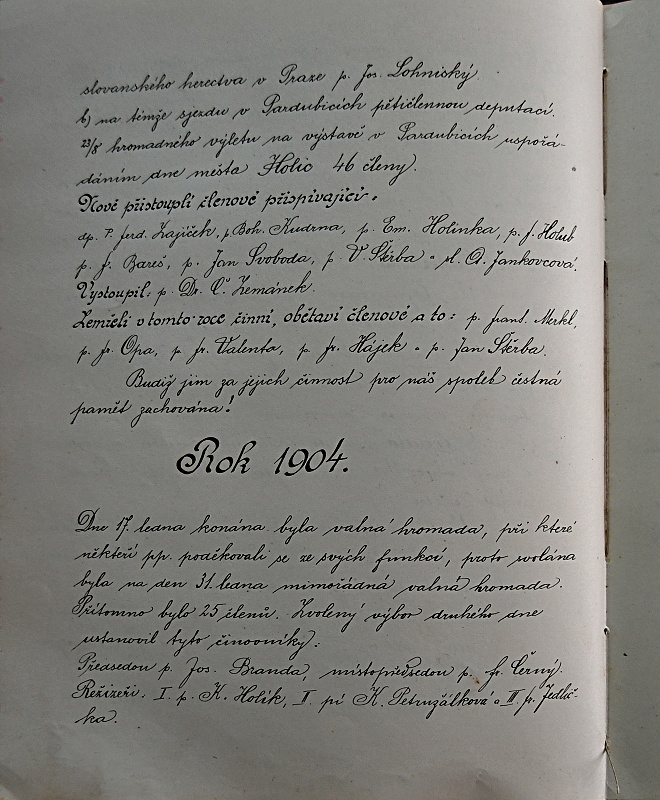 slovanského herectva v Praze p. Jos. Lohniský.
b) na témže sjezdu v Pardubicích pětičlennou deputací.
23/8 hromadného výletu na výstavě v Pardubicích uspořá-
dáním dne města Holic 46 členy).
Nově přistouplí členové přispívající:
dp. P. Ferd. Zajíček, p. Boh. Kudrna, p. Em. Holinka, p. J. Holub
p. J. Bareš, p. Jan Svoboda, p. V. Štěrba a sl. O. Jankovcová.
Vystoupil: p. Dr. Č. Zemánek.
Zemřeli v tomto roce činní, obětaví členové a to: p. Frant. Merkl,
p. Fr. Opa, p. Fr. Valenta, p. Fr. Hájek a p. Jan Štěrba.
Budiž jim za jejich činnost pro náš spolek čestná
paměť zachována!
Rok 1904.
Dne 17. ledna konána byla valná hromada, při které
někteří pp. poděkovali se ze svých funkcí, proto svolána
byla na den 31. ledna mimořádná valná hromada.
Přítomno bylo 25 členů. Zvolený výbor druhého dne
ustanovil tyto činovníky:
Předsedou p. Jos. Branda, místopředsedou p. Fr. Černý.
Režiséři: I. p. K. Holík, II. pí K. Petružálková a III. Fr. Jedlič-
ka.